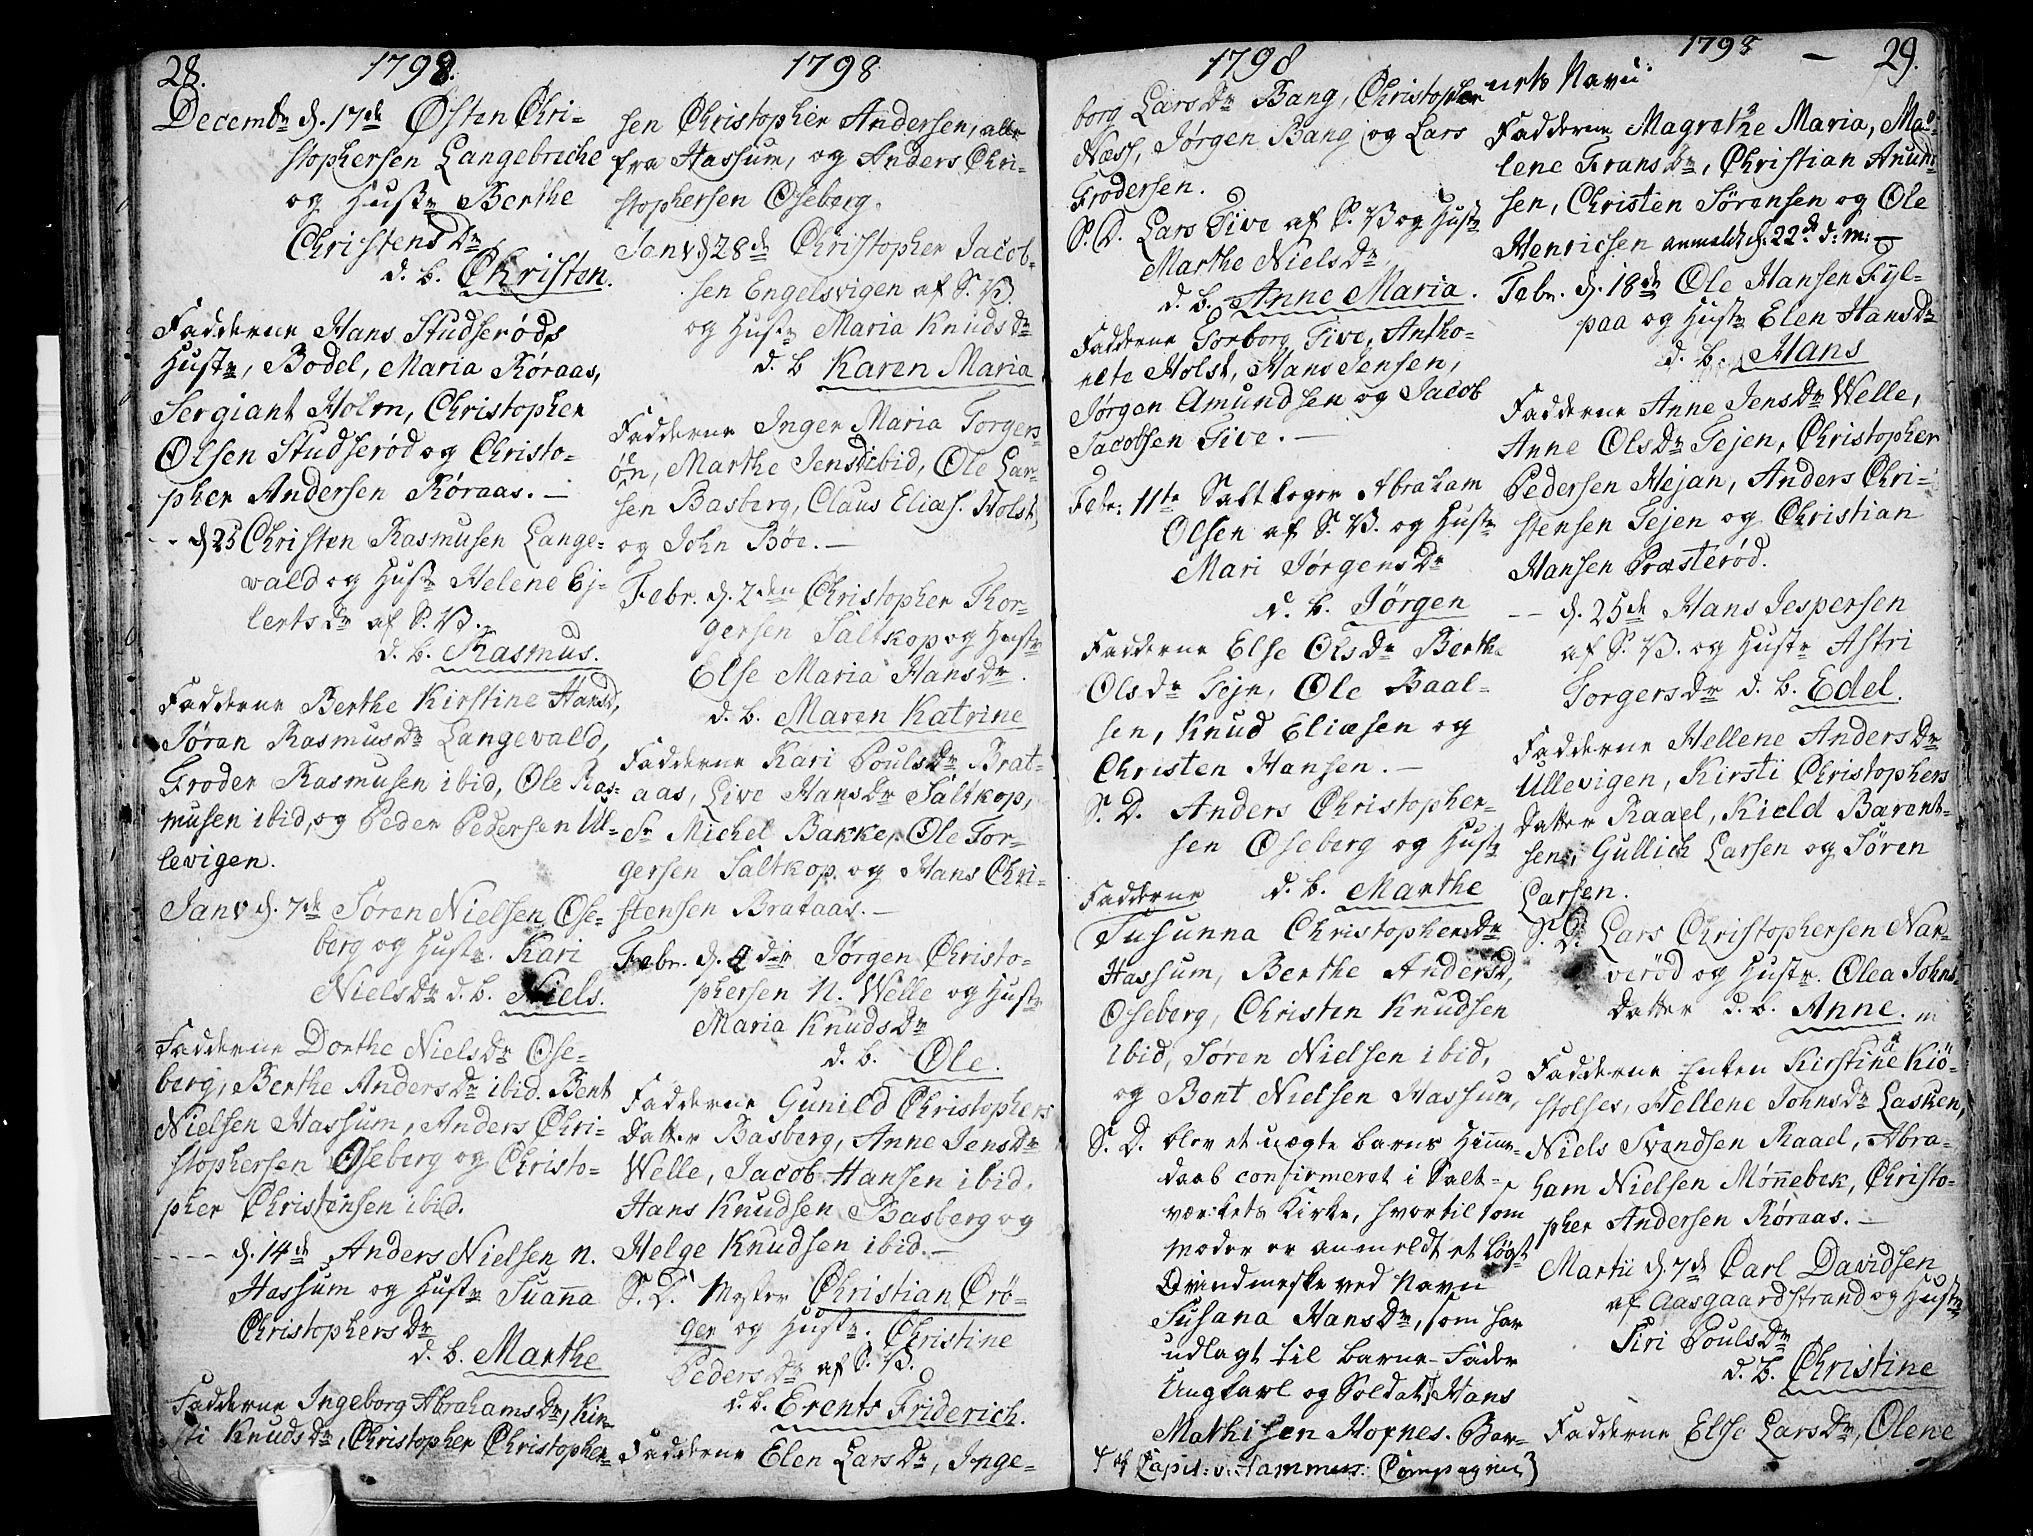 28.
1798.
Decembr d. 17de Østen Chri-
stophersen Langebreche
og Hustr Berthe
ChristensDr
d. b. Christen.
Fadderne Hans Studserøds
Hustr, Bodel, Maria Røraas,
Sergiant Holm, Christopher
Olsen Studserød og Christo-
pher Andersen Røraas. —
- - d 25 Christen Rasmusen Lange-
vald og Hustr Helene Ej-
lertsDr af S. V.
d. b. Rasmus.
Fadderne Berthe Kirstine Hansd,
Søran RasmusDr Langevald,
Froder Rasmusen ibid, Ole Ras-
musen ibid, og Peder Pedersen Ul-
levigen.
Janv d. 7de Søren Nielsen Ose-
berg og Hustr. Kari
NielsDr d. b. Niels.
Fadderne Dorthe NielsDr Ose-
berg, Berthe AndersDr ibid. Bent
Nielsen Hassum, Anders Chri-
stophersen Oseberg og Christo-
pher Christensen ibid.
- - - - d. 14de Anders Nielsen n.
Hassum og Hustr Suanna
ChristophersDr
d. b. Marthe
Fadderne Ingeborg AbrahamsDr, Kir-
sti KnudsDr, Christopher Christopher-
1798
sen Christopher Andersen, alle
fra Hassum, og Anders Chri-
stophersen Oseberg.
Janv d 28de Christopher Jacob-
sen Engelsvigen af S. V.
og Hustr Maria KnudsDr
d. b Karen Maria
Fadderne Inger Maria Torgers-
øn, Marthe Jensd ibid, Ole Lar-
sen Basberg, Claus Elias. Holst,
og John Bøe. —
Febr. d. 2den Christopher Thor-
gersen Saltkop og Hustr
Else Maria HansDr.
d. b. Maren Katrine
Fadderne Kari PoulsDr Brat-
aas, Live HansDr Saltkop,
Sr Michel Bakke, Ole Tor-
gersen Saltkop og Hans Chri-
stensen Brataas. —
Febr. d. 4de Jørgen Christo-
phersen N. Welle og Hustr
Maria KnudsDr
d. b. Ole.
Fadderne Gunild Christophers
Datter Basberg, Anne JensDr
Welle, Jacob Hansen ibid.
Hans Knudsen Basberg og
Helge Knudsen ibid. —
S. D. Mester Christian Crö-
ger og Hustr. Christine
PedersDr af S. V.
d. b. Erents Friderich.
Fadderne Elen LarsDr, Inge-
1798
borg LarsDr Bang, Christopher
Næss, Jørgen Bang og Lars
Frodersen.
S. D. Lars Tive af S. V og Hustr
Marthe NielsDr
d. b. Anne Maria.
Fadderne Torborg Tive, Antho-
nete Holst, Hans Jensen,
Jørgen Amundsen og Jacob
Jacobsen Tive. —
Febr: 11te Saltkoger Abraham
Olsen af S. V. og Hustr
Mari JørgensDr
d. b. Jörgen
Fadderne Else OlsDr Berthe
OlsDr Tejn, Ole Baal-
sen, Knud Eliæsen og
Christen Hansen. —
S. D. Anders Christopher-
sen Oseberg og Hustr
d. b. Marthe
Fadderne
Susunna ChristophersDr
Hassum, Berthe AndersD,
Oseberg, Christen Knudsen
ibid, Søren Nielsen ibid,
og Bent Nielsen Hassum,
S. D. blev et uægte Barns Hjime-
daab confirmeret i Salt-
værkets Kirke, hvortil som
Moder er anmeldt et løgst
Qvindmeske ved Navn
Susana HansDr, som har
udlagt til Barne-Fader
Ungkarl og Soldat Hans
Mathisen Hopnes. Bar-
af Capit: v: Hammers: Compagnie}
1798 — 29.
nets Navn:
Fadderne Magrethe Maria, Mad-
lene FransDr, Christian Amund-
sen, Christen Sørensen og Ole
Henricsen anmeldt d. 22de d: m: —
Febr. d. 18de Ole Hansen Fyl-
paa og Hustr Elen HansDr
d. b. Hans
Fadderne Anne JensDr Welle,
Anne OlsDr Tejen, Christopher
Pedersen Hejan, Anders Chri-
stensen Tejen og Christian
Hansen Præsterød.
— d. 25de Hans Jespersen
af S. V. og Hustr Astri
TorgersDr d. b. Edel.
Fadderne Hellene AndersDr
Ullevigen, Kirsti Christophers
Datter Raael, Kield Barent-
sen, Gullich Larsen og Søren
Larsen.
S. D. Lars Christophersen Nar-
verød og Hustr. Olea Johns-
datter d. b. Anne.
Fadderne Enken Kirstine Kiö-
stolses, Hellene JohnsDr Lasken,
Niels Svendsen Raael, Abra-
ham Nielsen Mønnebek, Christo-
pher Andersen Røraas. —
Martii d. 7de Carl Davidsen
af Aasgaardstrand og Hustr
Siri PoulsDr
d. b. Christine
Fadderne Else LarsDr, Olene